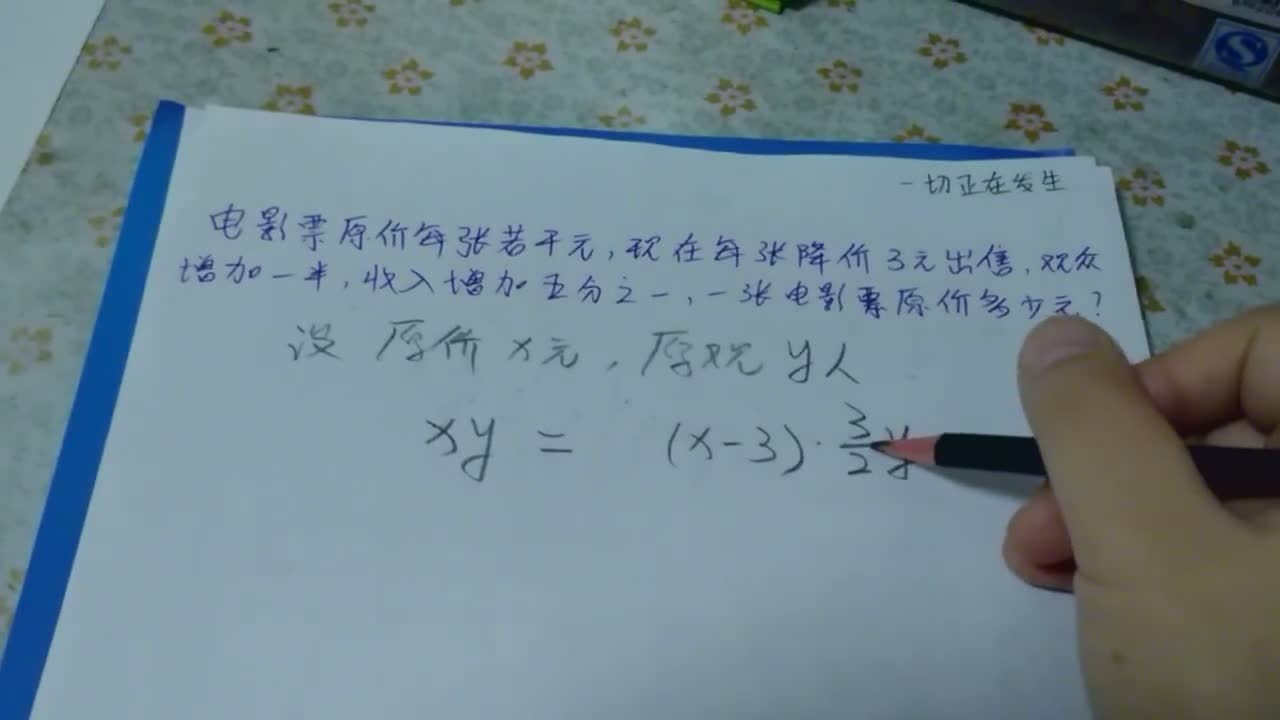 一切正在发生
电影票原价每张若干元,现在每张降价3元出售,观众
增加一半,收入增加五分之一,一张电影票原价多少元?
设 原价x元,原观 y人
xy = (x-3)·3/2y